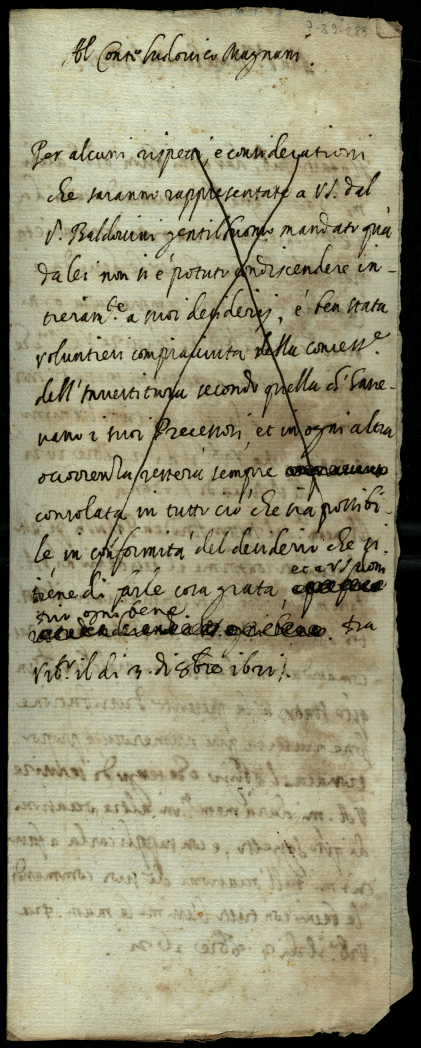 Al Conte Ludovico Magnani.
Per alcuni rispetti, e considerationi
che saranno rappresentate a VS. dal
S. Baldovini gentilhuomo mandato quà
da lei non si è potuto condiscendere in-
tieram.te a suoi desiderij, è ben stata
voluntieri compiaciuta della concess.e
dell'Investitura secondo quella ch'have-
vano i suoi Precessori, et in ogni altra
occorrenza resterà sempre
consolata in tutto ciò che sia possibi-
le in conformità del desiderio che si
tiene di farle cosa grata, et a VS. 
ogni bene. Da
il dì 3. di 8bre 1621.